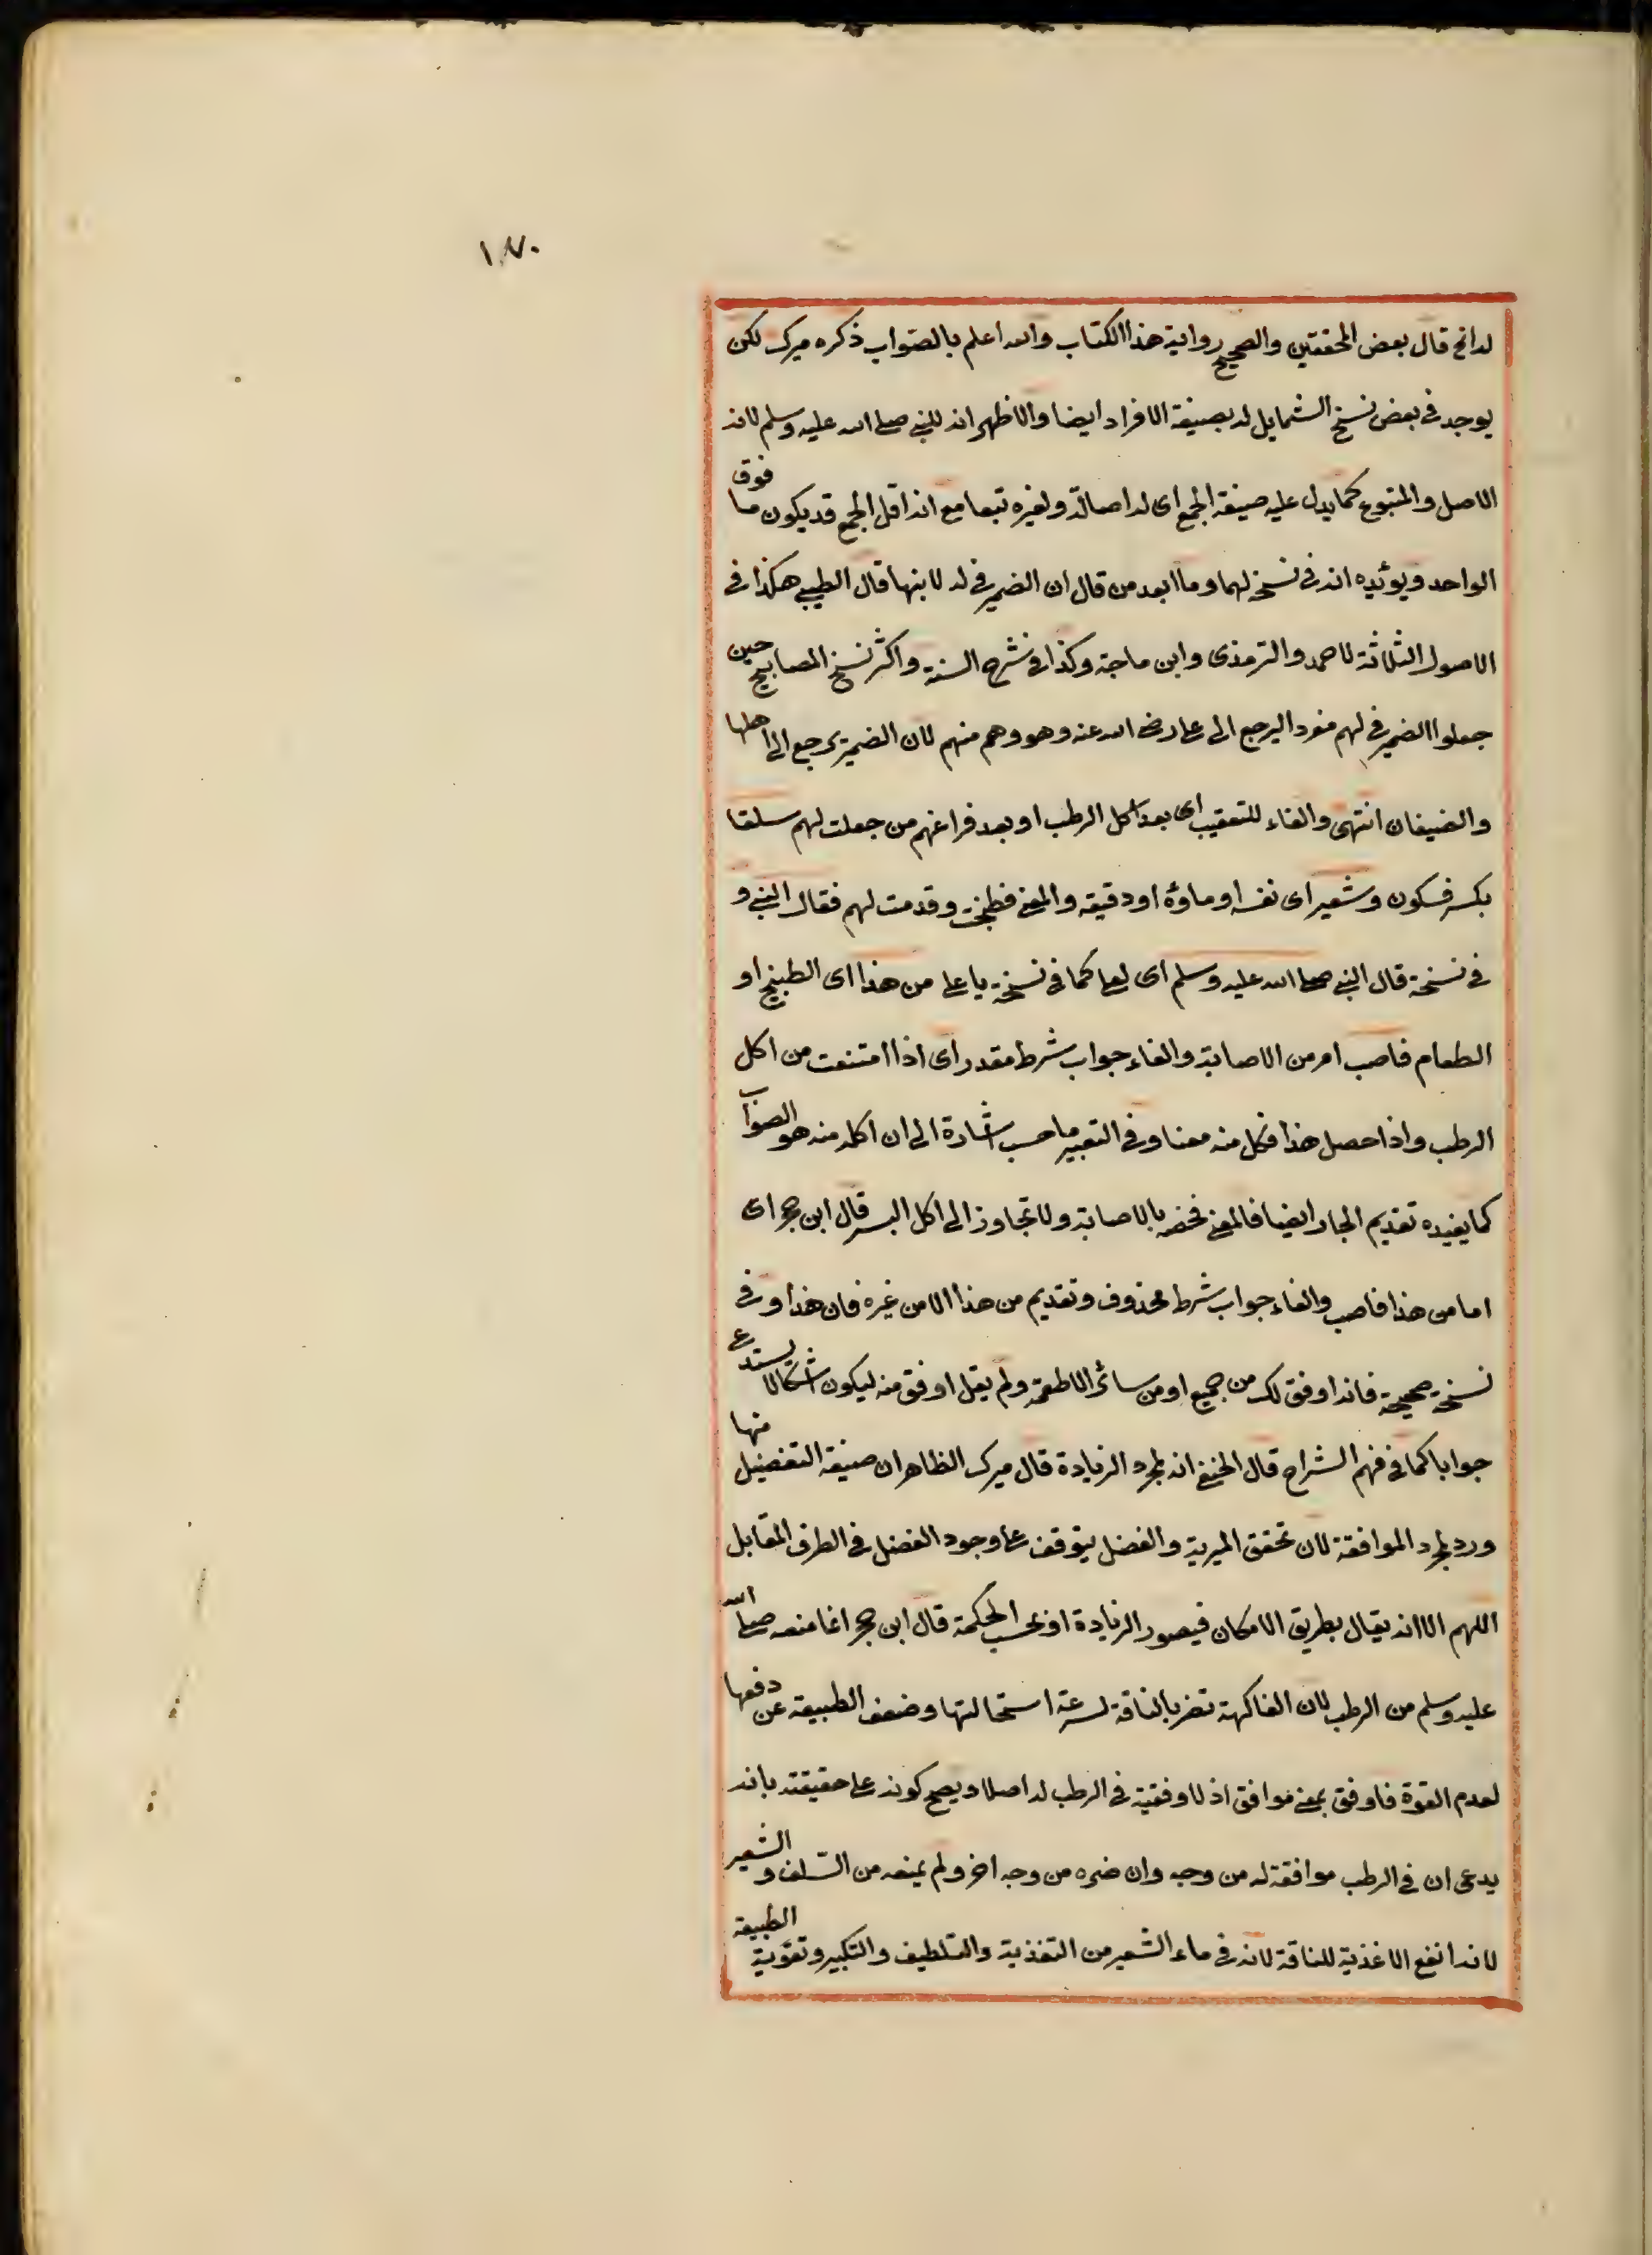 ١٨٧٠
له انه قال بعض المحققين والصحيح رواية هذا الكتاب والله اعلم بالصواب ذكره ميرك لكن
يوجد فى بعض نسخ الشمايل له بصيغة الافراد ايضا والاظهر انه للنبى صلى الله عليه وسلم لانه
الاصل والمتبوع كما يدل عليه صيغة الجمع اى له اصالة ولغيره تبعا مع ان اقل الجمع قد يكون ما فوق
الواحد ويؤيده انه فى نسخة لهما وما ابعد من قال ان الضمير فى له لابنها قال الطيبى هكذا فى
الاصول الثلاثة لاحمد والترمذى وابن ماجة وكذا فى شرح السنة واكثر نسخ المصابيح حين
جعلوا الضمير فى لهم مفردا ليرجع الى على رضى الله عنه وهو وهم منهم لان الضمير يرجع الى اهلها
والضيفان انتهى والفاء للتعقيب اى بعد اكل الرطب او بعد فراغهم من جعلت لهم سلقا
بكسر فسكون وشعير اى نفسه او ماؤه او دقيقه والمعنى فطبخت وقدمت لهم فقال النبى و
فى نسخة قال النبى صلى الله عليه وسلم اى لعلى كما فى نسخة يا على من هذا اى الطبيخ او
الطعام فاصب امر من الاصابة والفاء جواب شرط مقدر اى اذا امتنعت من اكل
الرطب واذا حصل هذا فكل منه معنا وفى التعبير ما حسب اشارة الى ان اكله منه هو الصواب
كما يفيده تقديم الجار ايضا فالمعنى فخصه بالاصابة ولا تجاوز الى اكل البسر قال ابن حجر اى
اما من هذا فاصب والفاء جواب شرط محذوف وتقديم من هذا الا من غيره فان هذا وفى
نسخة صحيحة فانه اوفق لك من جميع او من سائر الاطعمة ولم يقل اوفق منه ليكون اشكالا يستدعى
جوابا كما فى فهم الشراح قال الحنفى انه لمجرد الزيادة قال ميرك الظاهر ان صيغة التفضيل منها
ورد لمجرد الموافقة لان تحقق المزية والفضل يتوقف على وجود الفضل فى الطرف المقابل
اللهم الا انه يقال بطريق الامكان فيصور الزيادة او بحسب الحكمة قال ابن حجر انما منعه صلى الله
عليه وسلم من الرطب لان الفاكهة تضر بالناقة لسرعة استحالتها وضعف الطبيعة عن دفعها
لعدم القوة فاوفق بمعنى موافق اذ لا وفقية فى الرطب له اصلا ويصح كونه على حقيقته بانه
يدعى ان فى الرطب موافقة له من وجه وان ضره من وجه اخر ولم يمنعه من السلق والشعير
لانه انفع الاغذية للناقة لانه فى ماء الشعير من التغذية والتلطيف والتكبير وتقوية الطبيعة